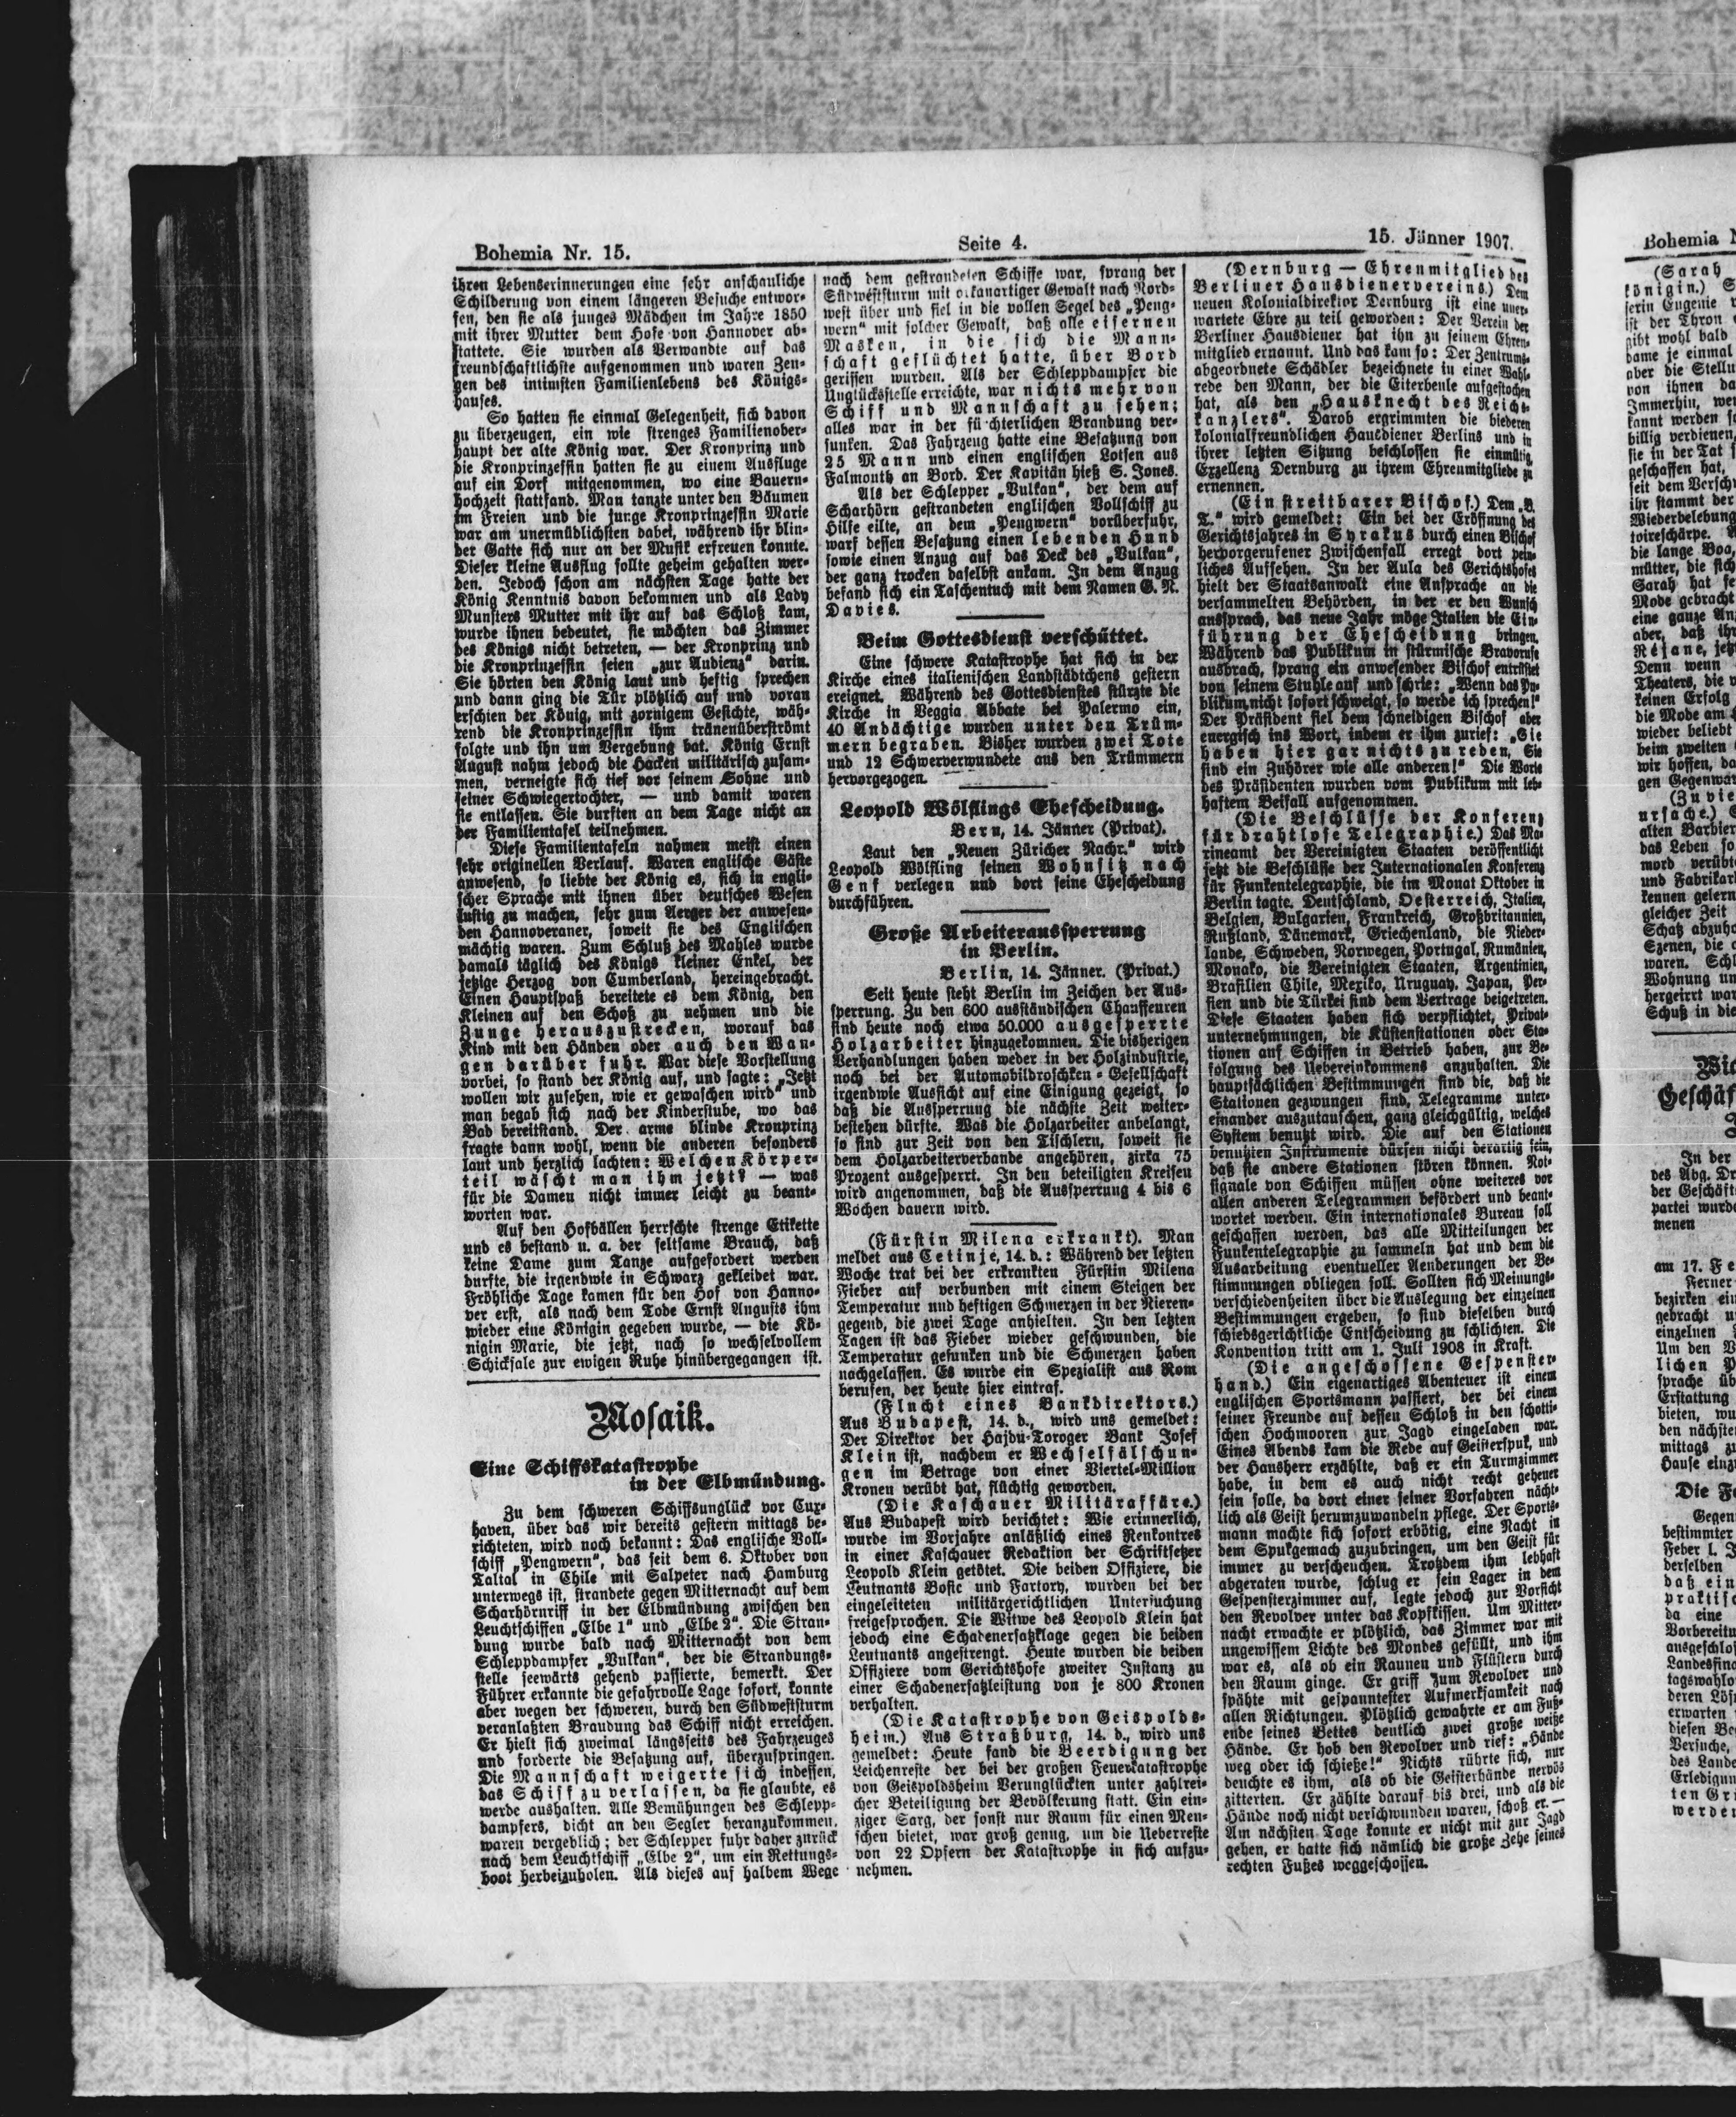 Bohemia Nr. 15.
Seite 4.
15. Jänner 1907.
ihren Lebenserinnerungen eine sehr anschauliche
Schilderung von einem längeren Besuche entwor-
fen, den sie als junges Mädchen im Jahre 1850
mit ihrer Mutter dem Hofe von Hannover ab-
stattete. Sie wurden als Verwandte auf das
freundschaftlichste aufgenommen und waren Zeu-
gen des intimsten Familienlebens des Königs-
hauses.
So hatten sie einmal Gelegenheit, sich davon
zu überzeugen, ein wie strenges Familienober-
haupt der alte König war. Der Kronprinz und
die Kronprinzessin hatten sie zu einem Ausfluge
auf ein Dorf mitgenommen, wo eine Bauern-
hochzeit stattfand. Man tanzte unter den Bäumen
im Freien und die junge Kronprinzessin Marie
war am unermüdlichsten dabei, während ihr blin-
der Gatte sich nur an der Musik erfreuen konnte.
Dieser kleine Ausflug sollte geheim gehalten wer-
den. Jedoch schon am nächsten Tage hatte der
König Kenntnis davon bekommen und als Lady
Munsters Mutter mit ihr auf das Schloß kam,
wurde ihnen bedeutet, sie möchten das Zimmer
des Königs nicht betreten, — der Kronprinz und
die Kronprinzessin seien „zur Audienz“ darin.
Sie hörten den König laut und heftig sprechen
und dann ging die Tür plötzlich auf und voran
erschien der König, mit zornigem Gesichte, wäh-
rend die Kronprinzessin ihm tränenüberströmt
folgte und ihn um Vergebung bat. König Ernst
August nahm jedoch die Hacken militärisch zusam-
men, verneigte sich tief vor seinem Sohne und
seiner Schwiegertochter, — und damit waren
sie entlassen. Sie durften an dem Tage nicht an
der Familientafel teilnehmen.
Diese Familientafeln nahmen meist einen
sehr originellen Verlauf. Waren englische Gäste
anwesend, so liebte der König es, sich in engli-
scher Sprache mit ihnen über deutsches Wesen
lustig zu machen, sehr zum Aerger der anwesen-
den Hannoveraner, soweit sie des Englischen
mächtig waren. Zum Schluß des Mahles wurde
damals täglich des Königs kleiner Enkel, der
jetzige Herzog von Cumberland, hereingebracht.
Einen Hauptspaß bereitete es dem König, den
Kleinen auf den Schoß zu nehmen und die
Zunge herauszustrecken, worauf das
Kind mit den Händen oder auch den Wan-
gen darüber fuhr. War diese Vorstellung
vorbei, so stand der König auf, und sagte: „Jetzt
wollen wir zusehen, wie er gewaschen wird“ und
man begab sich nach der Kinderstube, wo das
Bad bereitstand. Der arme blinde Kronprinz
fragte dann wohl, wenn die anderen besonders
laut und herzlich lachten: Welchen Körper-
teil wäscht man ihm jetzt? — was
für die Damen nicht immer leicht zu beant-
worten war.
Auf den Hofbällen herrschte strenge Etikette
und es bestand u. a. der seltsame Brauch, daß
keine Dame zum Tanze aufgefordert werden
durfte, die irgendwie in Schwarz gekleidet war.
Fröhliche Tage kamen für den Hof von Hanno-
ver erst, als nach dem Tode Ernst Augusts ihm
wieder eine Königin gegeben wurde, — die Kö-
nigin Marie, die jetzt, nach so wechselvollem
Schicksale zur ewigen Ruhe hinübergegangen ist.
Mosaik.
Eine Schiffskatastrophe
in der Elbmündung.
Zu dem schweren Schiffsunglück vor Cux-
haven, über das wir bereits gestern mittags be-
richteten, wird noch bekannt: Das englische Voll-
schiff „Pengwern“, das seit dem 6. Oktober von
Taltal in Chile mit Salpeter nach Hamburg
unterwegs ist, strandete gegen Mitternacht auf dem
Scharhörnriff in der Elbmündung zwischen den
Leuchtschiffen „Elbe 1“ und „Elbe 2“. Die Stran-
dung wurde bald nach Mitternacht von dem
Schleppdampfer „Vulkan“, der die Strandungs-
stelle seewärts gehend passierte, bemerkt. Der
Führer erkannte die gefahrvolle Lage sofort, konnte
aber wegen der schweren, durch den Südweststurm
veranlaßten Brandung das Schiff nicht erreichen.
Er hielt sich zweimal längsseits des Fahrzeuges
und forderte die Besatzung auf, überzuspringen.
Die Mannschaft weigerte sich indessen,
das Schiff zu verlassen, da sie glaubte, es
werde aushalten. Alle Bemühungen des Schlepp-
dampfers, dicht an den Segler heranzukommen,
waren vergeblich; der Schlepper fuhr daher zurück
nach dem Leuchtschiff „Elbe 2“, um ein Rettungs-
boot herbeizuholen. Als dieses auf halbem Wege
nach dem gestrandeten Schiffe war, sprang der
Südweststurm mit orkanartiger Gewalt nach Nord-
west über und fiel in die vollen Segel des „Peng-
wern“ mit solcher Gewalt, daß alle eisernen
Masken, in die sich die Mann-
schaft geflüchtet hatte, über Bord
gerissen wurden. Als der Schleppdampfer die
Unglücksstelle erreichte, war nichts mehr von
Schiff und Mannschaft zu sehen;
alles war in der fürchterlichen Brandung ver-
sunken. Das Fahrzeug hatte eine Besatzung von
25 Mann und einen englischen Lotsen aus
Falmouth an Bord. Der Kapitän hieß S. Jones.
Als der Schlepper „Vulkan“, der dem auf
Scharhörn gestrandeten englischen Vollschiff zu
Hilfe eilte, an dem „Pengwern“ vorüberfuhr,
warf dessen Besatzung einen lebenden Hund
sowie einen Anzug auf das Deck des „Vulkan“,
der ganz trocken daselbst ankam. In dem Anzug
befand sich ein Taschentuch mit dem Namen G. N.
Davies.
Beim Gottesdienst verschüttet.
Eine schwere Katastrophe hat sich in der
Kirche eines italienischen Landstädtchens gestern
ereignet. Während des Gottesdienstes stürzte die
Kirche in Veggia Abbate bei Palermo ein,
40 Andächtige wurden unter den Trüm-
mern begraben. Bisher wurden zwei Tote
und 12 Schwerverwundete aus den Trümmern
hervorgezogen.
Leopold Wölflings Ehescheidung.
Bern, 14. Jänner (Privat).
Laut den „Neuen Züricher Nachr.“ wird
Leopold Wölfling seinen Wohnsitz nach
Genf verlegen und dort seine Ehescheidung
durchführen.
Große Arbeiteraussperrung
in Berlin.
Berlin, 14. Jänner. (Privat.)
Seit heute steht Berlin im Zeichen der Aus-
sperrung. Zu den 600 ausständischen Chauffeuren
sind heute noch etwa 50.000 ausgesperrte
Holzarbeiter hinzugekommen. Die bisherigen
Verhandlungen haben weder in der Holzindustrie,
noch bei der Automobildroschken-Gesellschaft
irgendwie Aussicht auf eine Einigung gezeigt, so
daß die Aussperrung die nächste Zeit weiter-
bestehen dürfte. Was die Holzarbeiter anbelangt,
so sind zur Zeit von den Tischlern, soweit sie
dem Holzarbeiterverbande angehören, zirka 75
Prozent ausgesperrt. In den beteiligten Kreisen
wird angenommen, daß die Aussperrung 4 bis 6
Wochen dauern wird.
(Fürstin Milena erkrankt). Man
meldet aus Cetinje, 14. d.: Während der letzten
Woche trat bei der erkrankten Fürstin Milena
Fieber auf verbunden mit einem Steigen der
Temperatur und heftigen Schmerzen in der Nieren-
gegend, die zwei Tage anhielten. In den letzten
Tagen ist das Fieber wieder geschwunden, die
Temperatur gesunken und die Schmerzen haben
nachgelassen. Es wurde ein Spezialist aus Rom
berufen, der heute hier eintraf.
(Flucht eines Bankdirektors.)
Aus Budapest, 14. d., wird uns gemeldet:
Der Direktor der Hajdu-Toroger Bank Josef
Klein ist, nachdem er Wechselfälschun-
gen im Betrage von einer Viertel-Million
Kronen verübt hat, flüchtig geworden.
(Die Kaschauer Militäraffäre.)
Aus Budapest wird berichtet: Wie erinnerlich,
wurde im Vorjahre anläßlich eines Renkontres
in einer Kaschauer Redaktion der Schriftsetzer
Leopold Klein getötet. Die beiden Offiziere, die
Leutnants Bosic und Fartory, wurden bei der
eingeleiteten militärgerichtlichen Untersuchung
freigesprochen. Die Witwe des Leopold Klein hat
jedoch eine Schadenersatzklage gegen die beiden
Leutnants angestrengt. Heute wurden die beiden
Offiziere vom Gerichtshofe zweiter Instanz zu
einer Schadenersatzleistung von je 800 Kronen
verhalten.
(Die Katastrophe von Geispolds-
heim.) Aus Straßburg, 14. d., wird uns
gemeldet: Heute fand die Beerdigung der
Leichenreste der bei der großen Feuerkatastrophe
von Geispoldsheim Verunglückten unter zahlrei-
cher Beteiligung der Bevölkerung statt. Ein ein-
ziger Sarg, der sonst nur Raum für einen Men-
schen bietet, war groß genug, um die Ueberreste
von 22 Opfern der Katastrophe in sich aufzu-
nehmen.
(Dernburg — Ehrenmitglied des
Berliner Hausdienervereins.) Dem
neuen Kolonialdirektor Dernburg ist eine uner-
wartete Ehre zu teil geworden: Der Verein der
Berliner Hausdiener hat ihn zu seinem Ehren-
mitglied ernannt. Und das kam so: Der Zentrums-
abgeordnete Schädler bezeichnete in einer Wahl-
rede den Mann, der die Eiterbeule aufgestochen
hat, als den „Hausknecht des Reichs-
kanzlers“. Darob ergrimmten die biederen
kolonialfreundlichen Hausdiener Berlins und in
ihrer letzten Sitzung beschlossen sie einmütig,
Exzellenz Dernburg zu ihrem Ehrenmitgliede zu
ernennen.
(Ein streitbarer Bischof.) Dem „B.
T.“ wird gemeldet: Ein bei der Eröffnung des
Gerichtsjahres in Syrakus durch einen Bischof
hervorgerufener Zwischenfall erregt dort pein-
liches Aufsehen. In der Aula des Gerichtshofes
hielt der Staatsanwalt eine Ansprache an die
versammelten Behörden, in der er den Wunsch
aussprach, das neue Jahr möge Italien die Ein-
führung der Ehescheidung bringen.
Während das Publikum in stürmische Bravorufe
ausbrach, sprang ein anwesender Bischof entrüstet
von seinem Stuhle auf und schrie: „Wenn das Pu-
blikum nicht sofort schweigt, so werde ich sprechen!“
Der Präsident fiel dem schneidigen Bischof aber
energisch ins Wort, indem er ihm zurief: „Sie
haben hier gar nichts zu reden, Sie
sind ein Zuhörer wie alle anderen!“ Die Worte
des Präsidenten wurden vom Publikum mit leb-
haftem Beifall aufgenommen.
(Die Beschlüsse der Konferenz
für drahtlose Telegraphie.) Das Ma-
rineamt der Vereinigten Staaten veröffentlicht
jetzt die Beschlüsse der Internationalen Konferenz
für Funkentelegraphie, die im Monat Oktober in
Berlin tagte. Deutschland, Oesterreich, Italien,
Belgien, Bulgarien, Frankreich, Großbritannien,
Rußland, Dänemark, Griechenland, die Nieder-
lande, Schweden, Norwegen, Portugal, Rumänien,
Monako, die Vereinigten Staaten, Argentinien,
Brasilien Chile, Mexiko, Uruguay, Japan, Per-
sien und die Türkei sind dem Vertrage beigetreten.
Diese Staaten haben sich verpflichtet, Privat-
unternehmungen, die Küstenstationen oder Sta-
tionen auf Schiffen in Betrieb haben, zur Be-
folgung des Uebereinkommens anzuhalten. Die
hauptsächlichen Bestimmungen sind die, daß die
Stationen gezwungen sind, Telegramme unter-
einander auszutauschen, ganz gleichgültig, welches
System benutzt wird. Die auf den Stationen
benutzten Instrumente dürfen nicht derartig sein,
daß sie andere Stationen stören können. Not-
signale von Schiffen müssen ohne weiteres vor
allen anderen Telegrammen befördert und beant-
wortet werden. Ein internationales Bureau soll
geschaffen werden, das alle Mitteilungen der
Funkentelegraphie zu sammeln hat und dem die
Ausarbeitung eventueller Aenderungen der Be-
stimmungen obliegen soll. Sollten sich Meinungs-
verschiedenheiten über die Auslegung der einzelnen
Bestimmungen ergeben, so sind dieselben durch
schiedsgerichtliche Entscheidung zu schlichten. Die
Konvention tritt am 1. Juli 1908 in Kraft.
(Die angeschossene Gespenster-
hand.) Ein eigenartiges Abenteuer ist einem
englischen Sportsmann passiert, der bei einem
seiner Freunde auf dessen Schloß in den schotti-
schen Hochmooren zur Jagd eingeladen war.
Eines Abends kam die Rede auf Geisterspuk, und
der Hausherr erzählte, daß er ein Turmzimmer
habe, in dem es auch nicht recht geheuer
sein solle, da dort einer seiner Vorfahren nächt-
lich als Geist herumzuwandeln pflege. Der Sports-
mann machte sich sofort erbötig, eine Nacht in
dem Spukgemach zuzubringen, um den Geist für
immer zu verscheuchen. Trotzdem ihm lebhaft
abgeraten wurde, schlug er sein Lager in dem
Gespensterzimmer auf, legte jedoch zur Vorsicht
den Revolver unter das Kopfkissen. Um Mitter-
nacht erwachte er plötzlich, das Zimmer war mit
ungewissem Lichte des Mondes gefüllt, und ihm
war es, als ob ein Raunen und Flüstern durch
den Raum ginge. Er griff zum Revolver und
spähte mit gespanntester Aufmerksamkeit nach
allen Richtungen. Plötzlich gewahrte er am Fuß-
ende seines Bettes deutlich zwei große weiße
Hände. Er hob den Revolver und rief: „Hände
weg oder ich schieße!“ Nichts rührte sich, nur
deuchte es ihm, als ob die Geisterhände nervös
zitterten. Er zählte darauf bis drei, und als die
Hände noch nicht verschwunden waren, schoß er. —
Am nächsten Tage konnte er nicht mit zur Jagd
gehen, er hatte sich nämlich die große Zehe seines
rechten Fußes weggeschossen.
Bohemia
(Sarah
königin.)
serin Eugenie
ist der Thron
gibt wohl bald
dame je einmal
aber die Stellu
von ihnen da
Immerhin, wer
kannt werden
billig verdienen,
sie in der Tat
geschaffen hat,
seit dem Versch
ihr stammt der
Wiederbelebung
toireschärpe.
die lange Boa,
mütter, die sich
Sarah hat
Mode gebracht
eine ganze An
aber, daß ihr
Réjane, jetz
Denn wenn
Theaters, die
keinen Erfolg
die Mode am
wieder beliebt
beim zweiten
wir hoffen, da
gen Gegenwar
(Zu vie
ursache.)
alten Barbier
das Leben so
mord verübt
und Fabrikar
kennen gelern
gleicher Zeit
Schatz abzuho
Szenen, die
waren. Schl
Wohnung un
hergeirrt war
Schuß in die
Geschäf
In der
des Abg. Dr
der Geschäft
partei wurde
menen
am 17. Fe
Ferner
bezirken ein
gebracht
einzelnen
Um den
lichen
sprache üb
Erstattung
bieten, wu
den nächste
mittags
Hause einz
Die
Gegen
bestimmter
Feber l.
derselben
daß ein
praktisch
da eine
Vorbereitu
ausgeschlos
Landesfina
tagswahlo
deren Lös
erwarten
diesen
Versuche,
des Lande
Erledigun
ten
werden